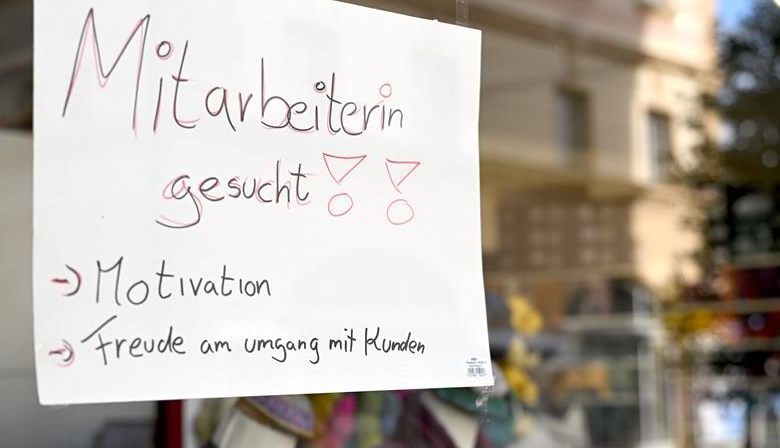 Mitarbeiterin
gesucht!!
-> Motivation
-> Freude am umgang mit Kunden